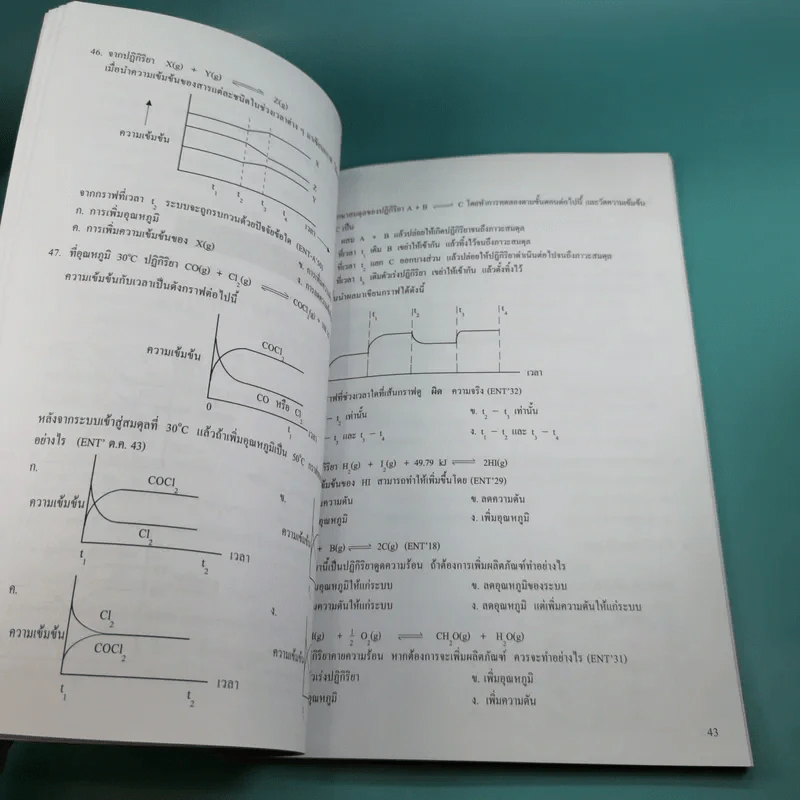 46. จากปฏิกิริยา X(g) + Y(g) ⇌ Z(g)
เมื่อนำความเข้มข้นของสารแต่ละชนิดในช่วงเวลาต่าง ๆ
ความเข้มข้น
X
Z
Y
t₁ t₂ t₃ t₄ เวลา
จากกราฟที่เวลา t₂ ระบบจะถูกรบกวนด้วยปัจจัยข้อใด (ENT'
ก. การเพิ่มอุณหภูมิ
ข.
ค. การเพิ่มความเข้มข้นของ X(g)
ง.
47. ที่อุณหภูมิ 30°C ปฏิกิริยา CO(g) + Cl₂(g) ⇌ COCl₂(g) +
ความเข้มข้นกับเวลาเป็นดังกราฟต่อไปนี้
ความเข้มข้น
COCl₂
CO หรือ Cl₂
0 t₁ เวลา
หลังจากระบบเข้าสู่สมดุลที่ 30°C แล้วถ้าเพิ่มอุณหภูมิเป็น 50°C
อย่างไร (ENT' ต.ค. 43)
ก.
COCl₂
ความเข้มข้น
Cl₂
t₁ t₂ เวลา
ข.
ความเข้มข้น
ค.
Cl₂
ความเข้มข้น
COCl₂
t₁ t₂ เวลา
ง.
ความเข้มข้น
สมดุลของปฏิกิริยา A + B ⇌ C โดยทำการทดลองตามขั้นตอนต่อไปนี้ และวัดความเข้มข้น
C เป็น
ผสม A + B แล้วปล่อยให้เกิดปฏิกิริยาจนถึงภาวะสมดุล
ที่เวลา t₁ เติม B เขย่าให้เข้ากัน แล้วทิ้งไว้จนถึงภาวะสมดุล
ที่เวลา t₂ แยก C ออกบางส่วน แล้วปล่อยให้ปฏิกิริยาดำเนินต่อไปจนถึงภาวะสมดุล
ที่เวลา t₃ เติมตัวเร่งปฏิกิริยา เขย่าให้เข้ากัน แล้วตั้งทิ้งไว้
นำผลมาเขียนกราฟได้ดังนี้
t₁ t₂ t₃ t₄
เวลา
ที่ช่วงเวลาใดที่เส้นกราฟดู ผิด ความจริง (ENT'32)
เท่านั้น
ข. t₂ − t₃ เท่านั้น
และ t₃ − t₄
ง. t₁ − t₂ และ t₃ − t₄
H₂(g) + I₂(g) + 49.79 kJ ⇌ 2HI(g)
ของ HI สามารถทำให้เพิ่มขึ้นโดย (ENT'29)
ความดัน
ข. ลดความดัน
อุณหภูมิ
ง. เพิ่มอุณหภูมิ
+ B(g) ⇌ 2C(g) (ENT'18)
นี้เป็นปฏิกิริยาดูดความร้อน ถ้าต้องการเพิ่มผลิตภัณฑ์ทำอย่างไร
อุณหภูมิให้แก่ระบบ
ข. ลดอุณหภูมิของระบบ
ความดันให้แก่ระบบ
ง. ลดอุณหภูมิ แต่เพิ่มความดันให้แก่ระบบ
(g) + ½ O₂(g) ⇌ CH₂O(g) + H₂O(g)
คายความร้อน หากต้องการจะเพิ่มผลิตภัณฑ์ ควรจะทำอย่างไร (ENT'31)
เร่งปฏิกิริยา
ข. เพิ่มอุณหภูมิ
อุณหภูมิ
ง. เพิ่มความดัน
43